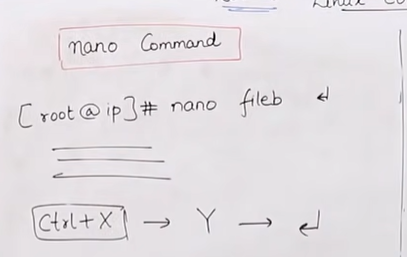 Linux
nano Command
[root@ip]# nano fileb ↵
Ctrl+X → Y → ↵